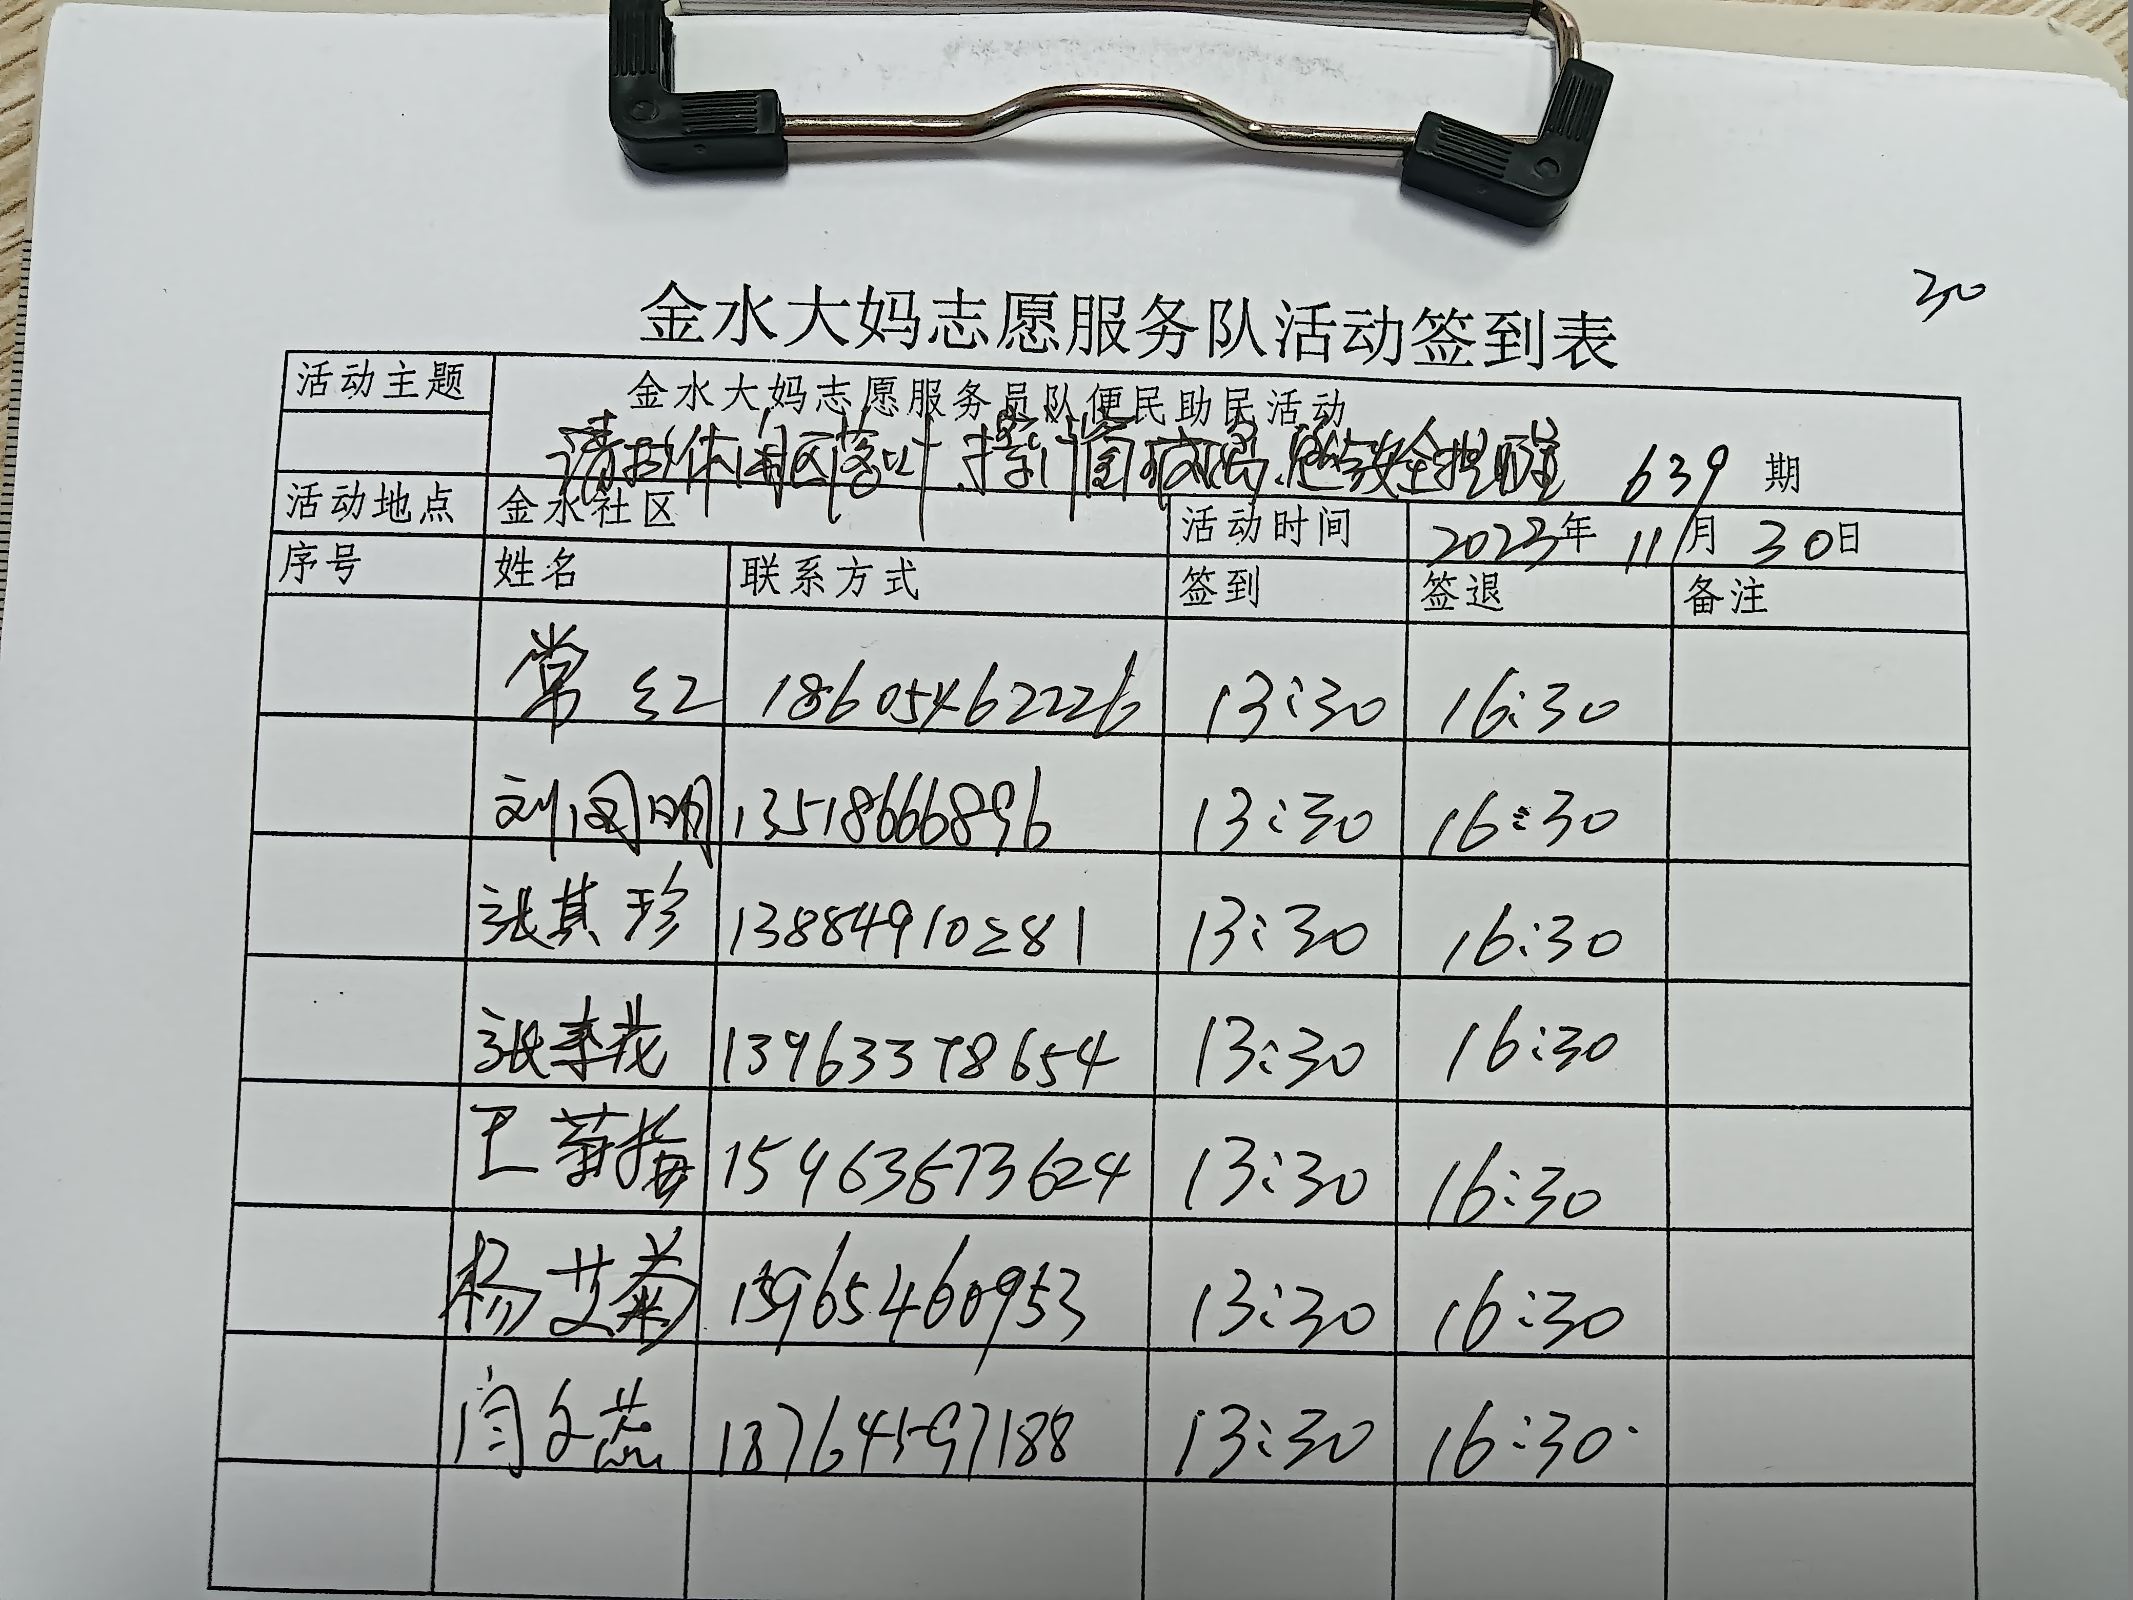 30
金水大妈志愿服务队活动签到表
活动主题 金水大妈志愿服务员队便民助民活动
清扫休闲区落叶、擦门窗玻璃、燃气安全提醒 639 期
活动地点 金水社区 活动时间 2023年 11月 30日
序号 姓名 联系方式 签到 签退 备注
常红 18605462226 13:30 16:30
刘闵明 13518666896 13:30 16:30
张其珍 13884910281 13:30 16:30
张季花 13963378654 13:30 16:30
王菊梅 15963573624 13:30 16:30
杨艾菊 15965460953 13:30 16:30
闫文蕊 18764597188 13:30 16:30